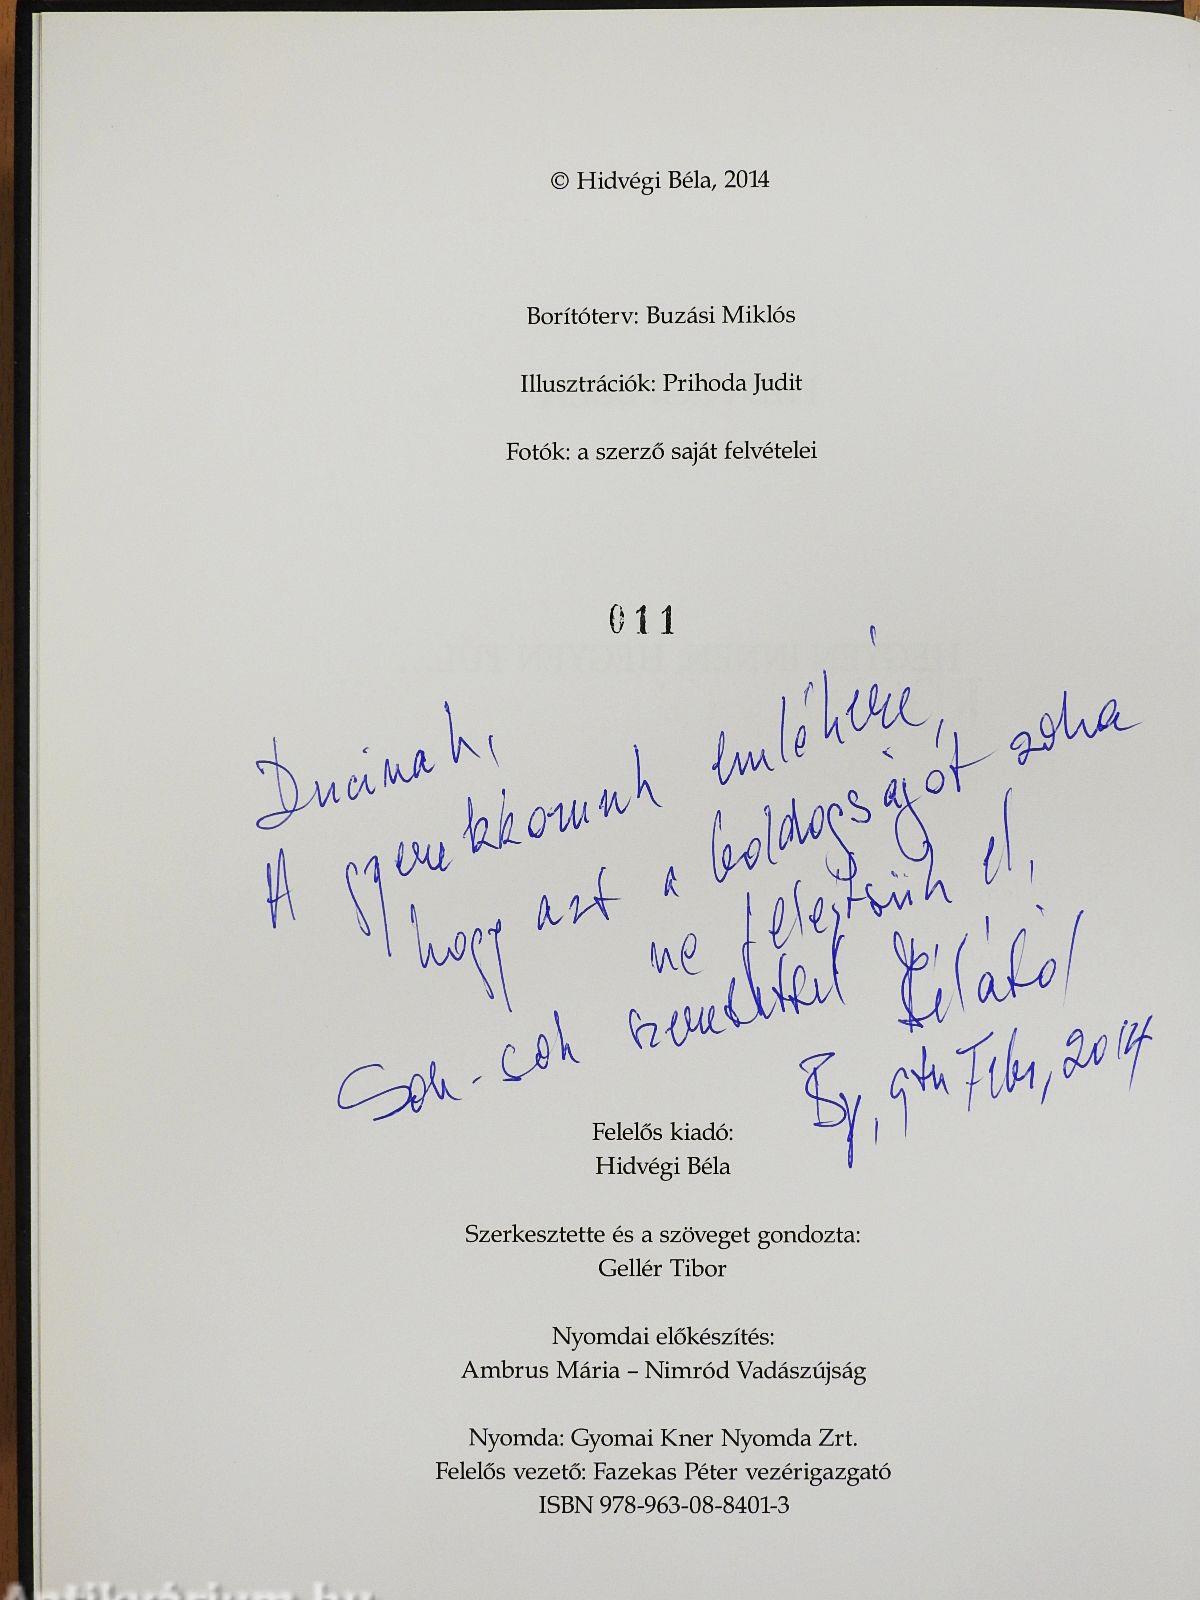 © Hidvégi Béla, 2014
Borítóterv: Buzási Miklós
Illusztrációk: Prihoda Judit
Fotók: a szerző saját felvételei
011
Ducinak,
A gyerekkorunk emlékére,
hogy azt a boldogságot soha
ne felejtsük el,
Sok-sok szeretettel Bélától
By, 9th Febr, 2014
Felelős kiadó:
Hidvégi Béla
Szerkesztette és a szöveget gondozta:
Gellér Tibor
Nyomdai előkészítés:
Ambrus Mária – Nimród Vadászújság
Nyomda: Gyomai Kner Nyomda Zrt.
Felelős vezető: Fazekas Péter vezérigazgató
ISBN 978-963-08-8401-3
Antikvárium.hu